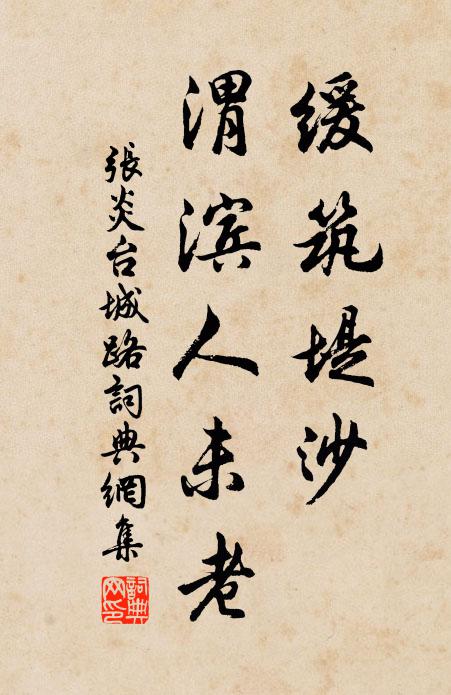 缓筑堤沙
渭滨人未老
張炎台城路詞典網集
詞典网印